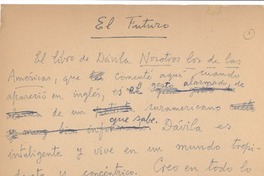 El Futuro
1
El libro de Dávila Nosotros los de las
Américas, que comenté aquí cuando
apareció en inglés, es el gesto alarmado, de
de un suramericano
que sabe. Dávila es
inteligente y vive en un mundo tropi-
y excéntrico. Creo en todo lo